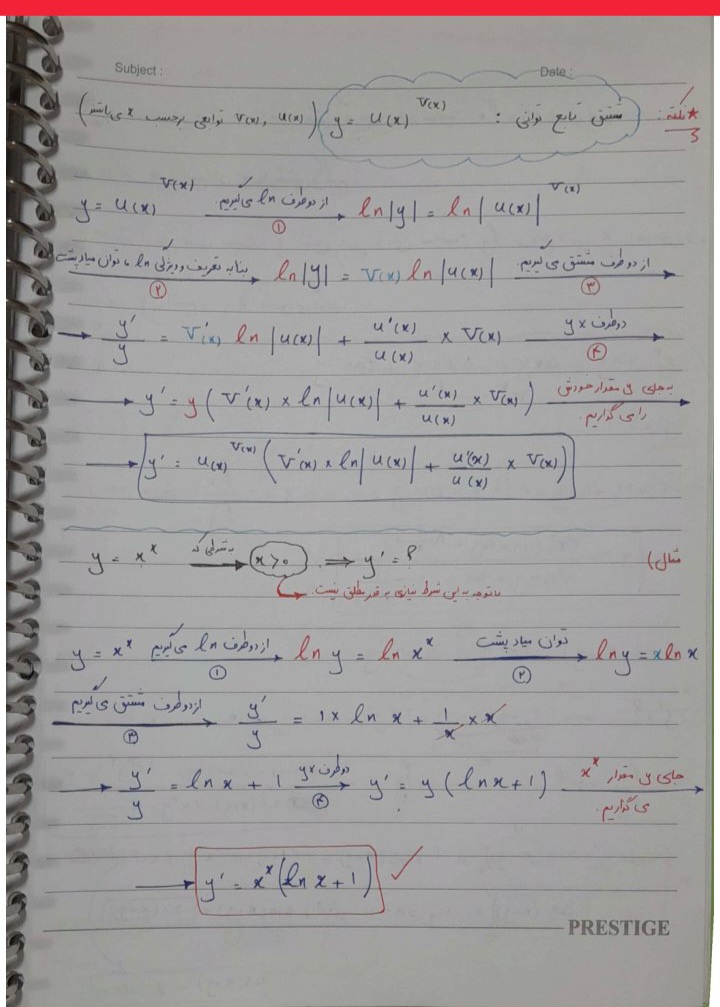 Subject :
Date :
★ نکته 3 : مشتق تابع توانی : y = u(x)^v(x) (u(x) , v(x) توابعی برحسب x می باشند)
y = u(x)^v(x) از دو طرف ln می گیریم. ① → ln|y| = ln|u(x)|^v(x)
بنا به تعریف و ویژگی ln ، توان میاد پشت ② → ln|y| = v(x) ln|u(x)| از دو طرف مشتق می گیریم. ③ →
→ y'/y = v'(x) ln|u(x)| + u'(x)/u(x) × v(x) دو طرف × y ④ →
→ y' = y ( v'(x) × ln|u(x)| + u'(x)/u(x) × v(x) ) به جای y مقدار خودش را می گذاریم. →
→ y' = u(x)^v(x) ( v'(x) × ln|u(x)| + u'(x)/u(x) × v(x) )
مثال) y = x^x به شرطی که → x>0 ⇒ y' = ?
باتوجه به این شرط نیازی به قدر مطلق نیست.
y = x^x از دو طرف ln می گیریم ① → ln y = ln x^x توان میاد پشت ② → ln y = x ln x
از دو طرف مشتق می گیریم ③ → y'/y = 1 × ln x + 1/x × x
→ y'/y = ln x + 1 دو طرف × y ④ → y' = y (ln x + 1) جای y مقدار x^x می گذاریم. →
→ y' = x^x (ln x + 1) ✓
PRESTIGE